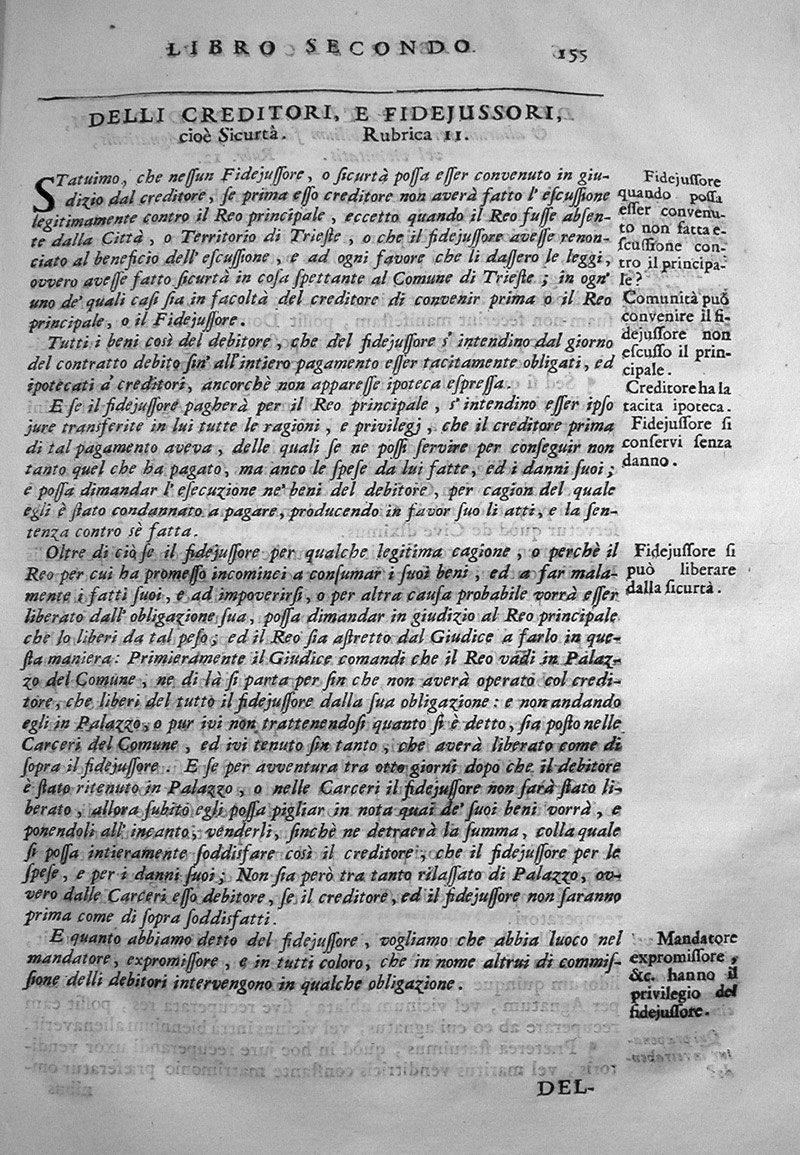 LIBRO SECONDO.
155
DELLI CREDITORI, E FIDEJUSSORI,
cioè Sicurtà. Rubrica II.
STatuimo, che neſſun Fidejuſſore, o ſicurtà poſſa eſſer convenuto in giu-
dizio dal creditore, ſe prima eſſo creditore non averà fatto l'eſcuſſione
legitimamente contro il Reo principale, eccetto quando il Reo fuſſe abſen-
te dalla Città, o Territorio di Trieſte, o che il fidejuſſore aveſſe renon-
ciato al beneficio dell'eſcuſſione, e ad ogni favore che li daſſero le leggi,
ovvero aveſſe fatto ſicurtà in coſa ſpettante al Comune di Trieſte; in ogn'
uno de' quali caſi ſia in facoltà del creditore di convenir prima o il Reo
principale, o il Fidejuſſore.
Tutti i beni così del debitore, che del fidejuſſore s'intendino dal giorno
del contratto debito ſin'all'intiero pagamento eſſer tacitamente obligati, ed
ipotecati a' creditori, ancorchè non appareſſe ipoteca eſpreſſa.
E ſe il fidejuſſore pagherà per il Reo principale, s'intendino eſſer ipſo
jure transferite in lui tutte le ragioni, e privilegj, che il creditore prima
di tal pagamento aveva, delle quali ſe ne poſſi ſervire per conſeguir non
tanto quel che ha pagato, ma anco le ſpeſe da lui fatte, ed i danni ſuoi;
e poſſa dimandar l'eſecuzione ne' beni del debitore, per cagion del quale
egli è ſtato condannato a pagare, producendo in favor ſuo li atti, e la ſen-
tenza contro sè fatta.
Oltre di ciò ſe il fidejuſſore per qualche legitima cagione, o perchè il
Reo per cui ha promeſſo incominci a conſumar i ſuoi beni, ed a far mala-
mente i fatti ſuoi, e ad impoverirſi, o per altra cauſa probabile vorrà eſſer
liberato dall'obligazione ſua, poſſa dimandar in giudizio al Reo principale
che lo liberi da tal peſo; ed il Reo ſia aſtretto dal Giudice a farlo in que-
ſta maniera: Primieramente il Giudice comandi che il Reo vadi in Palaz-
zo del Comune, ne di là ſi parta per fin che non averà operato col credi-
tore, che liberi del tutto il fidejuſſore dalla ſua obligazione: e non andando
egli in Palazzo, o pur ivi non trattenendoſi quanto ſi è detto, ſia poſto nelle
Carceri del Comune, ed ivi tenuto ſin tanto, che averà liberato come di
ſopra il fidejuſſore. E ſe per avventura tra otto giorni dopo che il debitore
è ſtato ritenuto in Palazzo, o nelle Carceri il fidejuſſore non ſarà ſtato li-
berato, allora ſubito egli poſſa pigliar in nota quai de' ſuoi beni vorrà, e
ponendoli all'incanto, venderli, finchè ne detraerà la ſumma, colla quale
ſi poſſa intieramente ſoddisfare così il creditore, che il fidejuſſore per le
ſpeſe, e per i danni ſuoi; Non ſia però tra tanto rilaſſato di Palazzo, ov-
vero dalle Carceri eſſo debitore, ſe il creditore, ed il fidejuſſore non ſaranno
prima come di ſopra ſoddisfatti.
E quanto abbiamo detto del fidejuſſore, vogliamo che abbia luoco nel
mandatore, expromiſſore, e in tutti coloro, che in nome altrui di commiſ-
ſione delli debitori intervengono in qualche obligazione.
Fidejuſſore
quando poſſa
eſſer convenu-
to non fatta e-
ſcuſſione con-
tro il principa-
le?
Comunità può
convenire il fi-
dejuſſore non
eſcuſſo il prin-
cipale.
Creditore ha la
tacita ipoteca.
Fidejuſſore ſi
conſervi ſenza
danno.
Fidejuſſore ſi
può liberare
dalla ſicurtà.
Mandatore
expromiſſore,
&c. hanno il
privilegio del
fidejuſſore.
DEL-